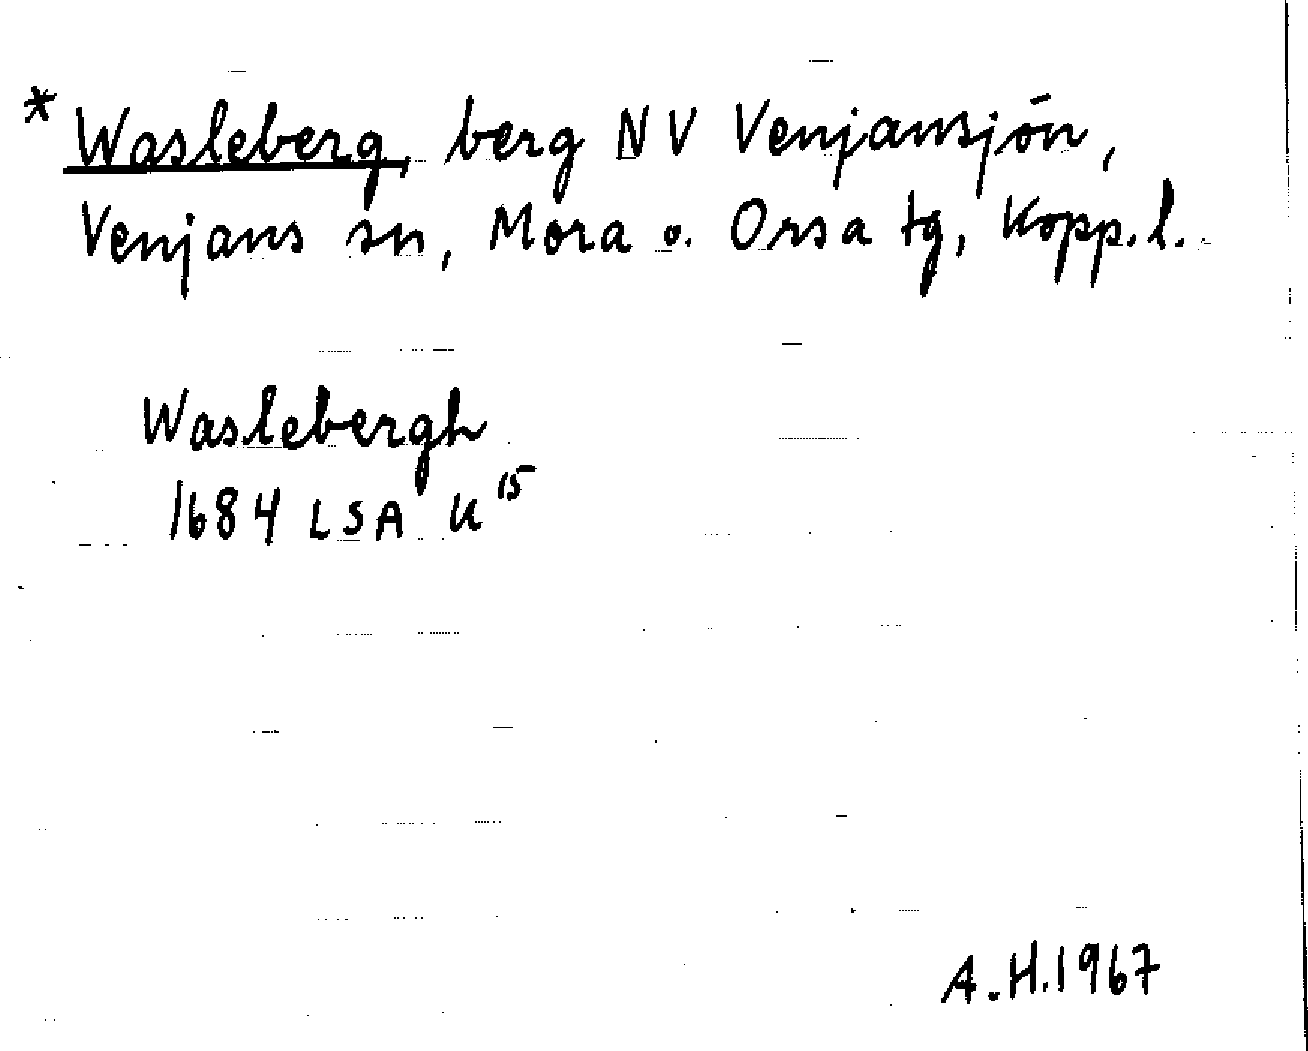 * Wasleberg, berg NV Venjansjön,
Venjans sn, Mora o. Orsa tg, Kopp.l.
Waslebergh
1684 LSA U 15
A.H.1967